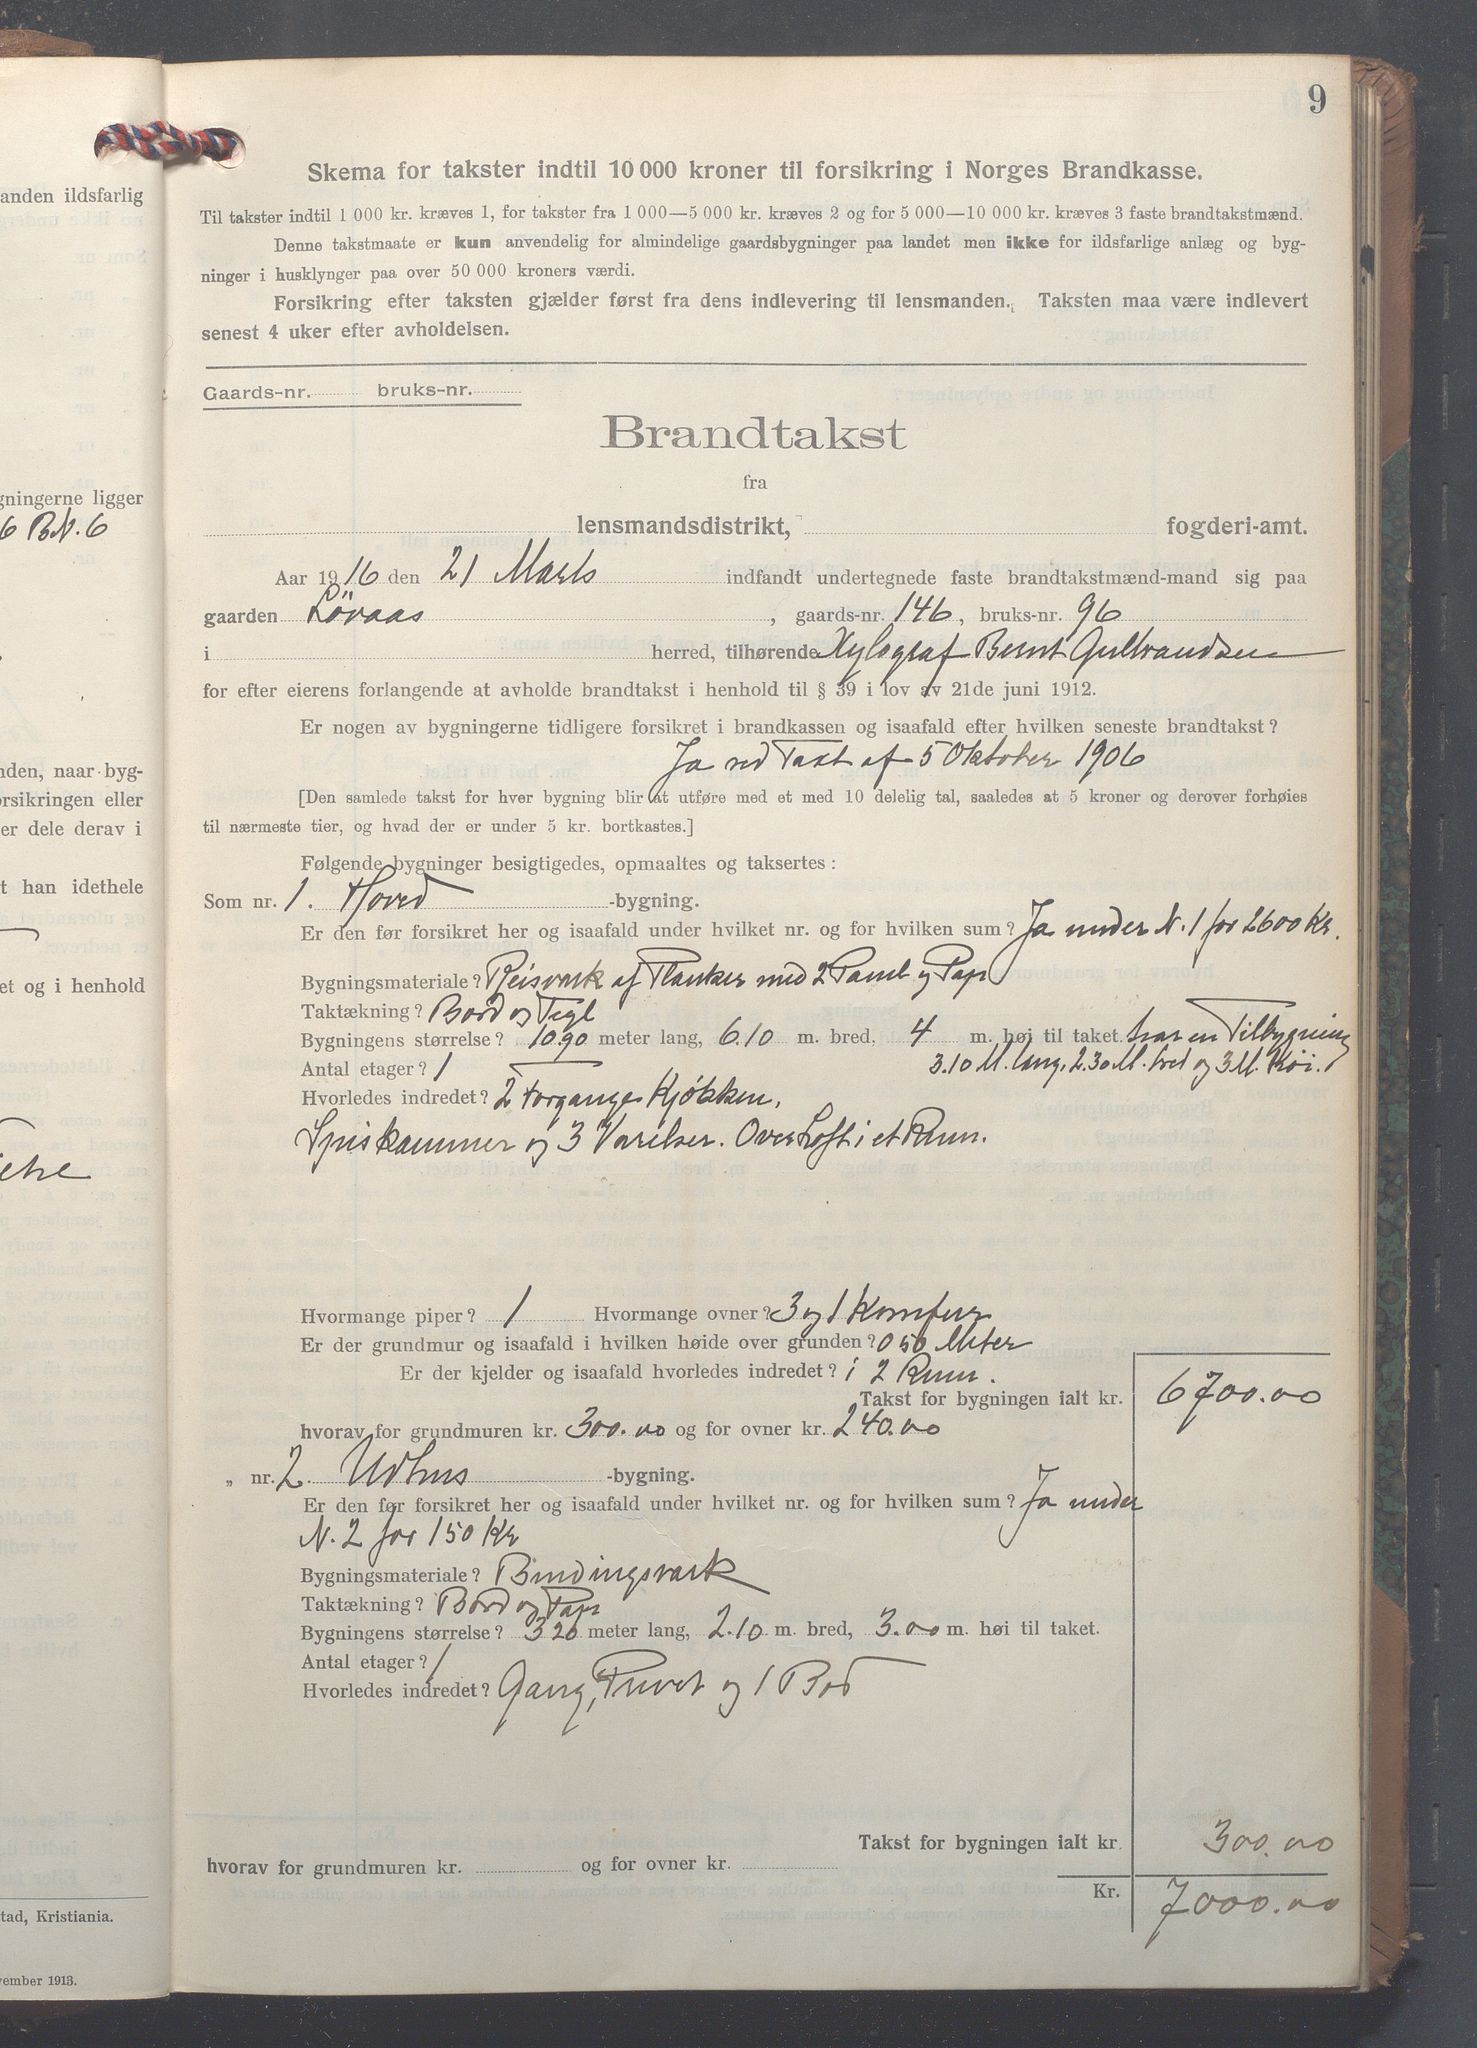 9
anden ildsfarlig
gningerne ligger
6 BN. 6
nden, naar byg-
orsikringen eller
er dele derav i
t han idethele
et og i henhold
tad, Kristiania.
vember 1913.
Skema for takster indtil 10 000 kroner til forsikring i Norges Brandkasse.
Til takster indtil 1 000 kr. kræves 1, for takster fra 1 000—5 000 kr. kræves 2 og for 5 000—10 000 kr. kræves 3 faste brandtakstmænd.
Denne takstmaate er kun anvendelig for almindelige gaardsbygninger paa landet men ikke for ildsfarlige anlæg og byg-
ninger i husklynger paa over 50 000 kroners værdi.
Forsikring efter taksten gjælder først fra dens indlevering til lensmanden. Taksten maa være indlevert
senest 4 uker efter avholdelsen.
Gaards-nr. bruks-nr.
Brandtakst
fra
lensmandsdistrikt, fogderi-amt.
Aar 1916 den 21 Marts indfandt undertegnede faste brandtakstmænd-mand sig paa
gaarden Lövaas, gaards-nr. 146, bruks-nr. 96
i herred, tilhørende Xylograf Bernt Gulbrandsen
for efter eierens forlangende at avholde brandtakst i henhold til § 39 i lov av 21de juni 1912.
Er nogen av bygningerne tidligere forsikret i brandkassen og isaafald efter hvilken seneste brandtakst?
Ja ved Taxt af 5 Oktober 1906
[Den samlede takst for hver bygning blir at utføre med et med 10 delelig tal, saaledes at 5 kroner og derover forhøies
til nærmeste tier, og hvad der er under 5 kr. bortkastes.]
Følgende bygninger besigtigedes, opmaaltes og taksertes:
Som nr. 1. Hoved -bygning.
Er den før forsikret her og isaafald under hvilket nr. og for hvilken sum? Ja under N. 1 for 2600 Kr.
Bygningsmateriale? Reisverk af Planker med 2 Panel og Pap
Taktækning? Bord og Tegl
Bygningens størrelse? 10.90 meter lang, 6.10 m. bred, 4 m. høi til taket. har en Tilbygning
3.10 M. lang, 2.30 M. bred og 3 M. höi.
Antal etager? 1
Hvorledes indredet? 2 Forgange, Kjøkken,
Spiskammer og 3 Værelser. Over Loft i et Rum.
Hvormange piper? 1 Hvormange ovner? 3 og 1 Komfur
Er der grundmur og isaafald i hvilken høide over grunden? 0 50 Meter
Er der kjelder og isaafald hvorledes indredet? i 2 Rum.
Takst for bygningen ialt kr. 6700.00
hvorav for grundmuren kr. 300.00 og for ovner kr. 240.00
„ nr. 2 Udhus -bygning.
Er den før forsikret her og isaafald under hvilket nr. og for hvilken sum? Ja under
N. 2 for 150 Kr
Bygningsmateriale? Bindingsverk
Taktækning? Bord og Pap
Bygningens størrelse? 3 20 meter lang, 2.10 m. bred, 3.00 m. høi til taket.
Antal etager? 1
Hvorledes indredet? Gang, Privet og 1 Bod
Takst for bygningen ialt kr. 300.00
hvorav for grundmuren kr. og for ovner kr.
Kr. 7000.00